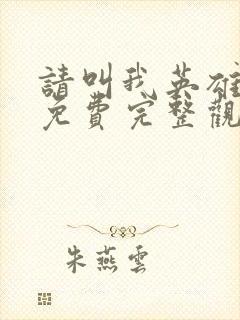 請叫我英雄
免費完整觀
朱燕雲